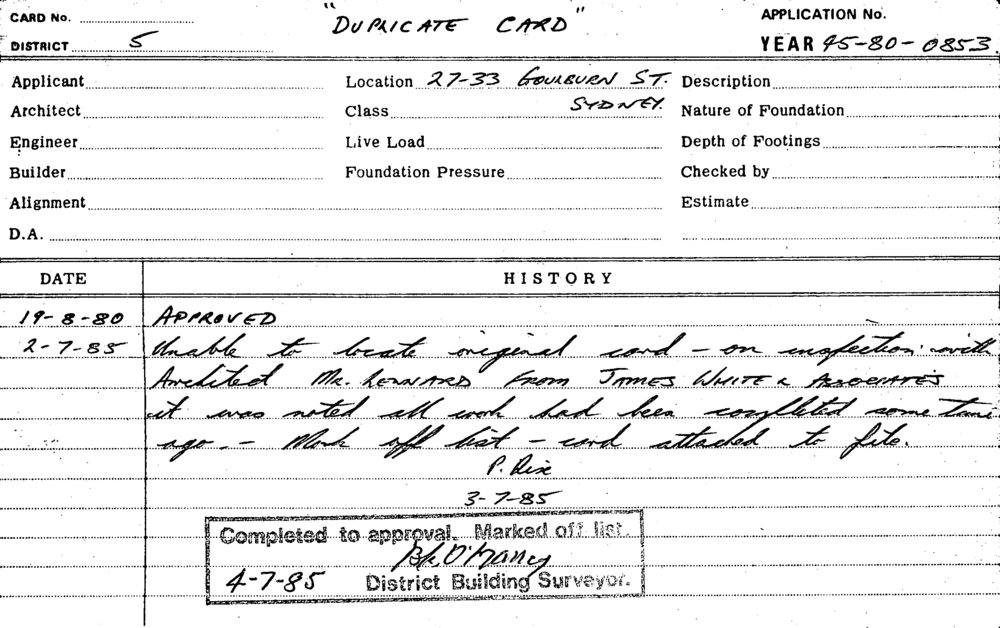 CARD No.
"DUPLICATE CARD"
APPLICATION No.
DISTRICT 5
YEAR 45-80-0853
Applicant
Location 27-33 GOULBURN ST. SYDNEY.
Description
Architect
Class
Nature of Foundation
Engineer
Live Load
Depth of Footings
Builder
Foundation Pressure
Checked by
Alignment
Estimate
D.A.
DATE
HISTORY
19-8-80 APPROVED
2-7-85 Unable to locate original card - on inspection with
Architect MR. LENNARD FROM JAMES WHITE & ASSOCIATES
it was noted all work had been completed some time
ago. - Mark off list - card attached to file.
P.
3-7-85
Completed to approval. Marked off list.
4-7-85 District Building Surveyor.